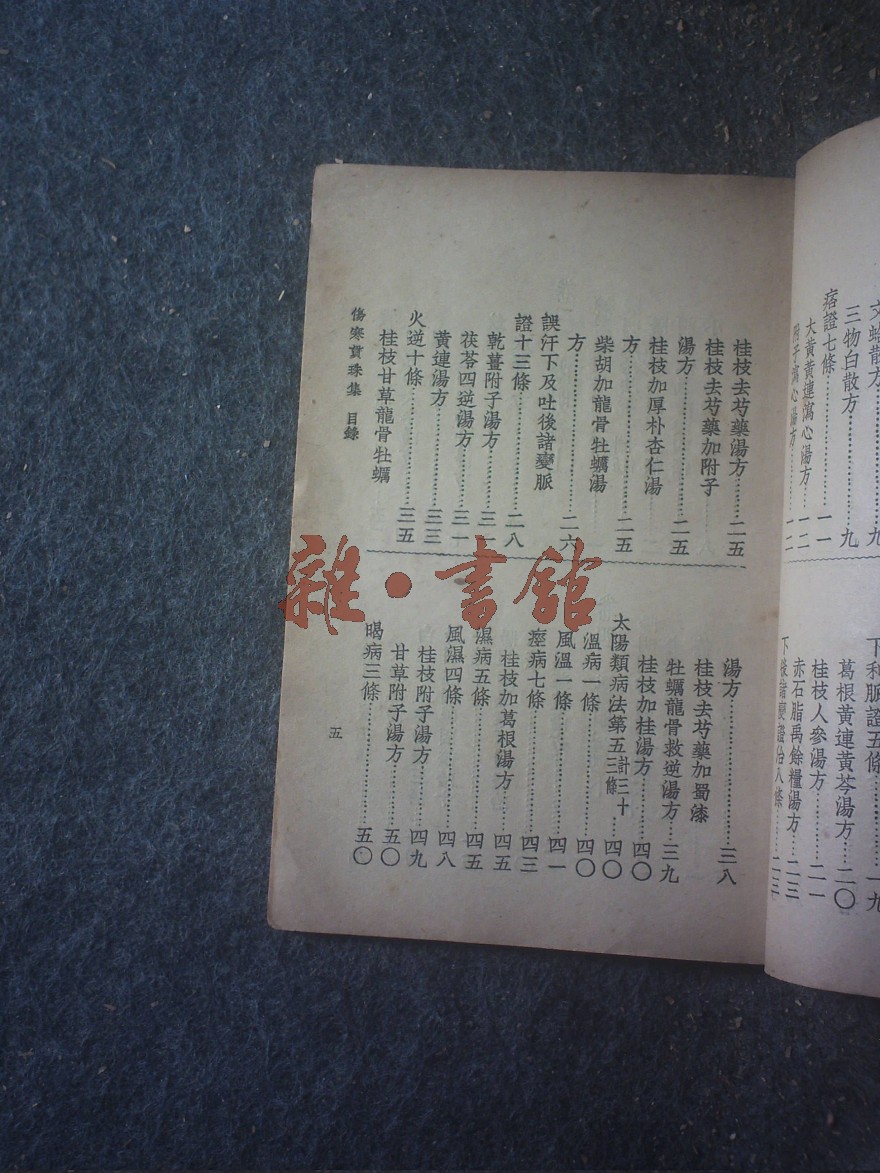 文蛤散方……九
三物白散方……九
痞證七條……一一
大黃黃連瀉心湯方……一二
附子瀉心湯方……一二
下利脈證五條……一九
葛根黃連黃芩湯方……二〇
桂枝人參湯方……二一
赤石脂禹餘糧湯方……二三
下後諸變證治八條……二三
桂枝去芍藥湯方……二五
桂枝去芍藥加附子
湯方……二五
桂枝加厚朴杏仁湯
方……二五
柴胡加龍骨牡蠣湯
方……二六
誤汗下及吐後諸變脈
證十三條……二八
乾薑附子湯方……三一
茯苓四逆湯方……三一
黃連湯方……三三
火逆十條……三五
桂枝甘草龍骨牡蠣
湯方……三八
桂枝去芍藥加蜀漆
牡蠣龍骨救逆湯方……三九
桂枝加桂湯方……四〇
太陽類病法第五計三十三條……四〇
溫病一條……四〇
風溫一條……四一
痙病七條……四三
桂枝加葛根湯方……四五
濕病五條……四五
風濕四條……四八
桂枝附子湯方……四九
甘草附子湯方……五〇
暍病三條……五〇
傷寒貫珠集 目錄
五
雜·書館